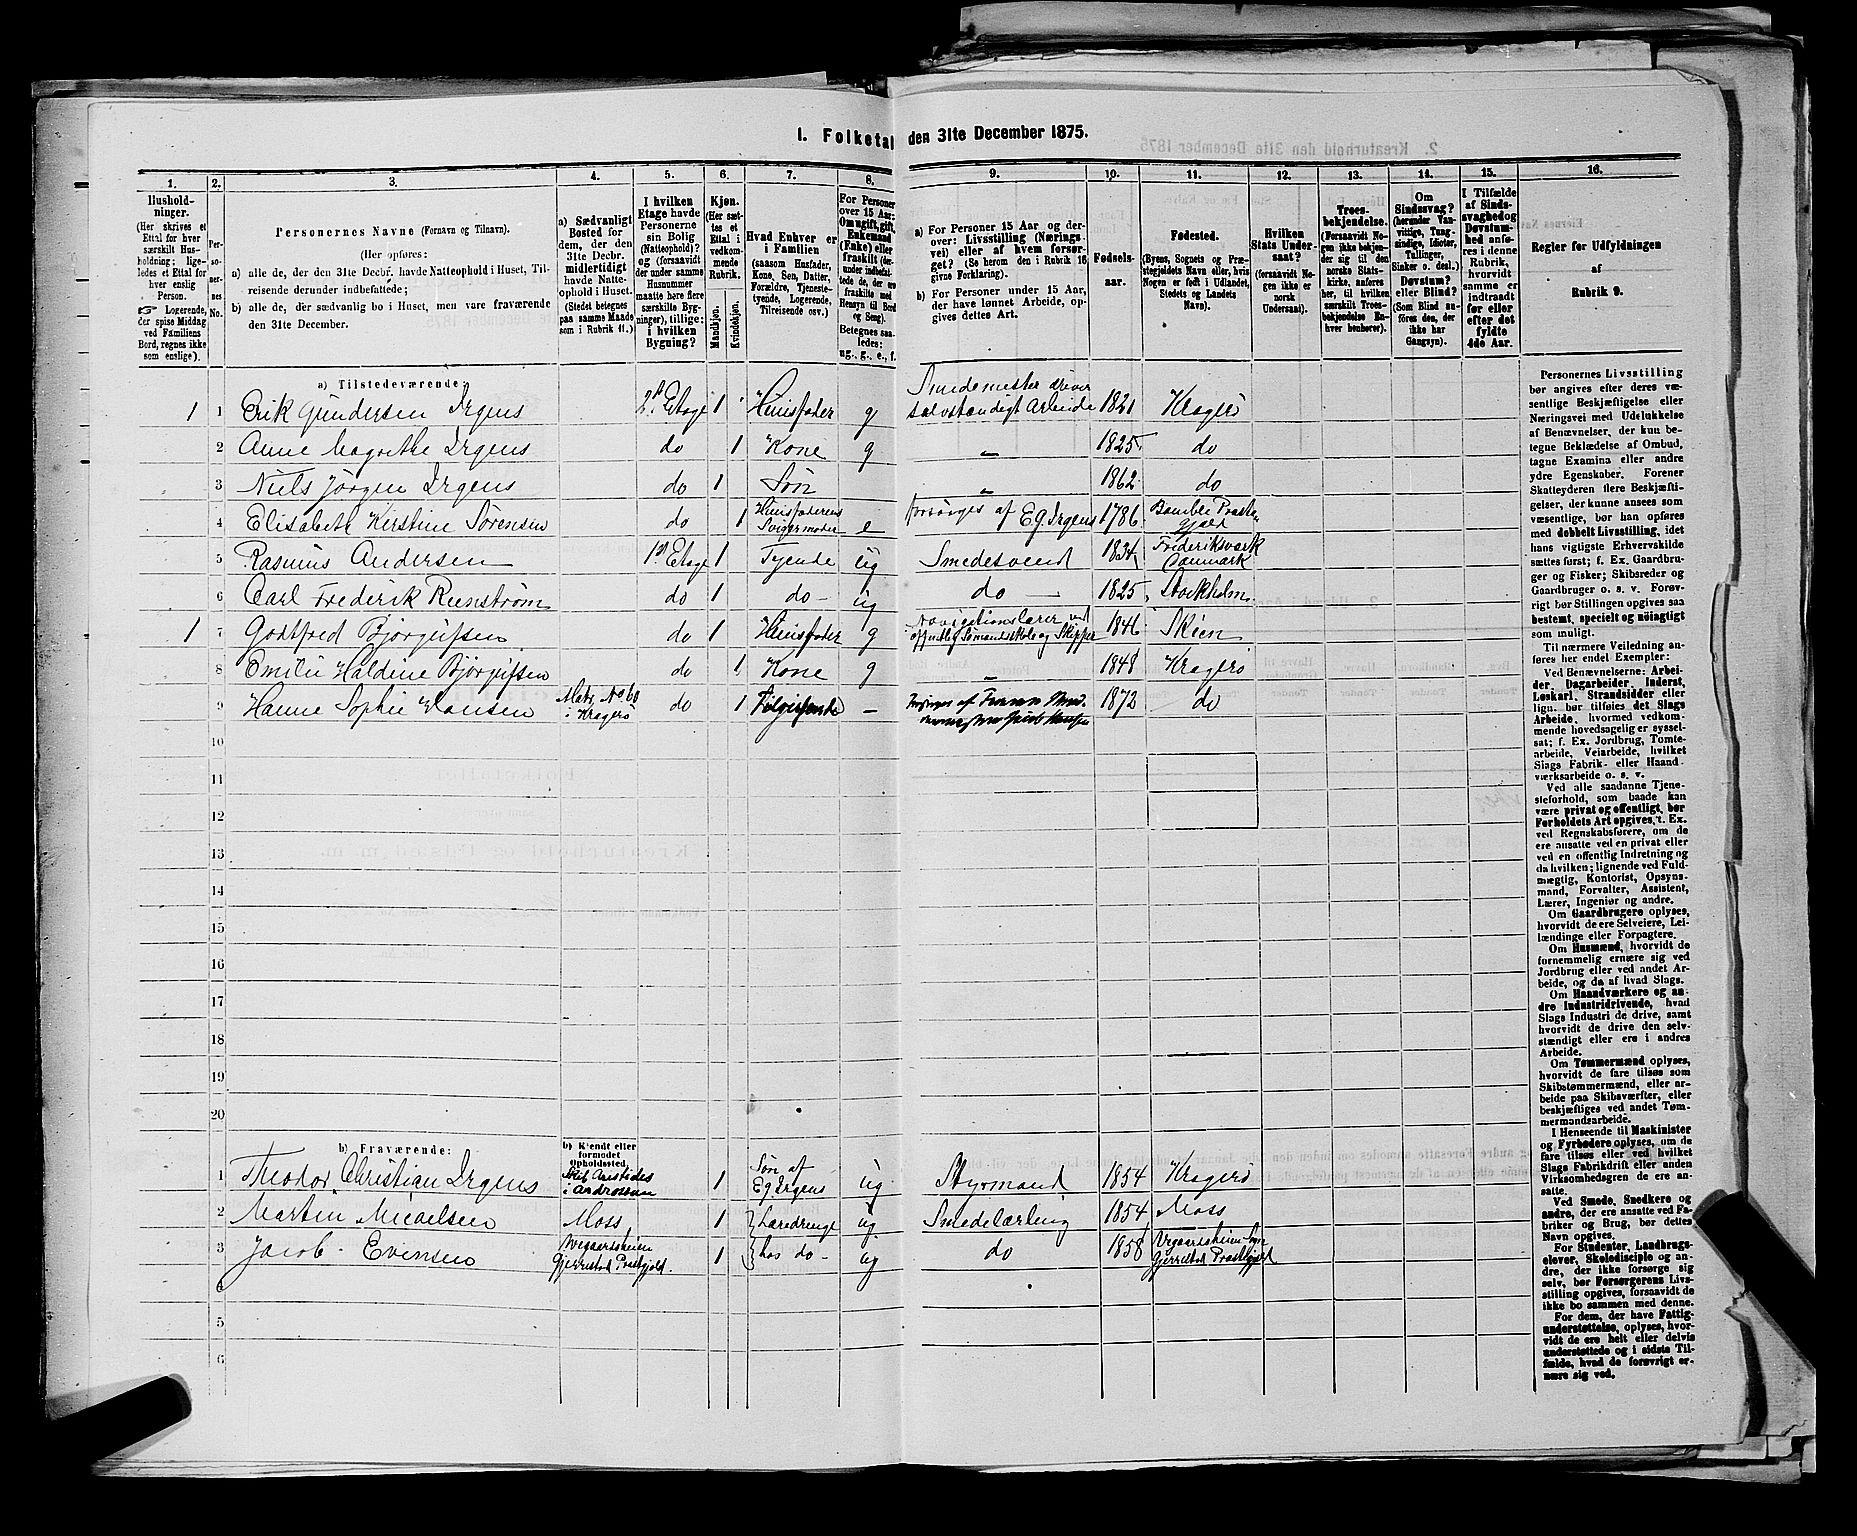 1. Folketal den 31te December 1875.
1. 2. 3. 4. 5. 6. 7. 8. 9. 10. 11. 12. 13. 14. 15. 16.
Husholdninger.
(Her skrives et
Ettal for hver
særskilt Husholdning;
ligeledes et Ettal for
hver enslig
Person.
Logerende,
der spise Middag
ved Familiens
Bord, regnes ikke
som enslige).
Personernes No.
Personernes Navne (Fornavn og Tilnavn).
(Her opføres:
a) alle de, der den 31te Decbr. havde Natteophold i Huset, Tilreisende derunder indbefattede;
b) alle de, der sædvanlig bo i Huset, men vare fraværende
den 31te December.
a) Sædvanligt
Bosted for
dem, der den
31te Decbr.
midlertidigt
havde Natteophold i Huset.
(Stedet betegnes
paa samme Maade
som i Rubrik 11.)
I hvilken
Etage havde
Personerne
sin Bolig
(Natteophold)?
og (forsaavidt
der under samme
Husnummer
maatte høre flere
særskilte Bygninger), tillige:
i hvilken
Bygning?
Kjøn.
(Her sættes et
Ettal i
vedkommende
Rubrik.
Mandkjøn.
Kvindekjøn.
Hvad Enhver er
i Familien
(saasom Husfader,
Kone, Søn, Datter,
Forældre, Tjenestetyende, Logerende,
Tilreisende osv.)
For Personer
over 15 Aar:
Om ugift, gift,
Enkemand
(Enke) eller
fraskilt
Betegnes saaledes:
ug., g., e., f.
a) For Personer 15 Aar og derover: Livsstilling (Næringsvei) eller af hvem forsørget? (Se herom den i Rubrik 16
givne Forklaring).
b) For Personer under 15 Aar,
der have lønnet Arbeide, opgives dettes Art.
Fødselsaar.
Fødested.
(Byens, Sognets og Præstegjeldets Navn eller, hvis
Nogen er født i Udlandet,
Stedets og Landets
Navn).
Hvilken
Stats Undersaat?
(forsaavidt Nogen ikke er
norsk
Undersaat).
Troesbekjendelse.
(Forsaavidt Nogen ikke bekjender sig til den
norske Statskirke, anføres
her, til hvilken
særskilt Troesbekjendelse Enhver henhører).
Om
Sindssvag?
(herunder Vanvittige, Tungsindige, Idioter,
Tullinger,
Sinker o. desl.)
Døvstum?
eller Blind?
(Som Blind anføres den, der
ikke har
Gangsyn).
I Tilfælde
af Sindssvaghed og
Døvstumhed anføres i denne
Rubrik,
hvorvidt
samme er
indtraadt
før eller
efter det
fyldte
4de Aar.
Regler for Udfyldningen
af
Rubrik 9.
a) Tilstedeværende:
1 1 Erik Gundersen Irgens 2den Etage 1 Huusfader g Smedemester driver selvstændigt Arbeide 1821 Kragerø
2 Anne Magrethe Irgens do 1 Kone g " 1825 do
3 Niels Jørgen Irgens do 1 Søn " 1862 do
4 Elisabeth Kirstine Sørensen do 1 Huusfaderens Svigermoder e forsørges af E G Irgens 1786 Bamble Præstegjeld
5 Rasmus Andersen 1st Etage 1 Tyende ug Smedesvend 1834 Frederiksværk Danmark
6 Carl Frederik Runstrøm do 1 do ug do 1825 Stockholm
1 7 Godtfred Bjørgulfsen do 1 Huusfader g Navigationslærer ved offentlig Sømandsskole og Skipper 1846 Skien
8 Emilie Haldine Bjørgulfsen do 1 Kone g " 1848 Kragerø
9 Hanne Sophie Hansen Matr. No 60 i Kragerø do 1 – Jacob Hansen 1872 do
10
11
12
13
14
15
16
17
18
19
20
b) Fraværende:
b) Kjendt eller
formodet
Opholdssted.
1 Theodor Christian Irgens Skib Aristides i Ardrossan 1 Søn af E g Irgens ug Styrmand 1854 Kragerø
2 Martin Micaelsen Moss 1 Læredrenge ug Smedelærling 1854 Moss
3 Jacob Evensen Gjerrestad Præstgjeld. 1 hos do ug do 1858 Gjerrestad Præstgjeld
5
6
Personernes Livsstilling
bør angives efter deres væsentlige Beskjæftigelse eller
Næringsvei med Udelukkelse
af Benævnelser, der kun betegne Beklædelse af Ombud,
tagne Examina eller andre
ydre Egenskaber. Forener
Skatteyderen flere Beskjæftigelser, der kunne ansees som
væsentlige, bør han opføres
med dobbelt Livsstilling, idet
hans vigtigste Erhvervskilde
sættes først; f. Ex. Gaardbruger og Fisker; Skibsreder og
Gaardbruger o. s. v. Forøvrigt bør Stillingen opgives saa
bestemt, specielt og nøiagtigt
som muligt.
Til nærmere Veiledning anføres her endel Exempler:
Ved Benævnelserne: Arbeider, Dagarbeider, Inderst,
Løskarl, Strandsidder eller
lign. bør tilføies det Slags
Arbeide, hvormed vedkommende hovedsagelig er sysselsat; f. Ex. Jordbrug, Tomtearbeide, Veiarbeide, hvilket
Slags Fabrik- eller Haandværksarbeide o. s. v.
Ved alle saadanne Tjenesteforhold, som baade kan
være privat og offentligt, bør
Forholdets Art opgives, t. Ex.
ved Regnskabsførere, om de
ere ansatte ved en privat eller
ved en offentlig Indretning og
da hvilken; lignende ved Fuldmægtig, Kontorist, Opsynsmand, Forvalter, Assistent,
Lærer, Ingeniør og andre.
Om Gaardbrugere oplyses,
hvorvidt de ere Selveiere, Leilændinge eller Forpagtere.
Om Husmænd, hvorvidt de
fornemmelig ernære sig ved
Jordbrug eller ved andet Arbeide, og da af hvad Slags.
Om Haandværkere og andre Industridrivende, hvad
Slags Industri de drive, samt
hvorvidt de drive den selvstændigt eller ere i andres
Arbeide.
Om Tømmermænd oplyses,
hvorvidt de fare tilsøs som
Skibstømmermænd, eller arbeide paa Skibsværfter, eller
beskjæftiges ved andet Tømmermandsarbeide.
I Henseende til Maskinister
og Fyrbødere oplyses, om de
fare tilsøs eller ved hvilket
Slags Fabrikdrift eller anden
Virksomhedsgren de ere ansatte.
Ved Smede, Snedkere og
andre, der ere ansatte ved Fabriker og Brug, bør dettes
Navn opgives.
For Studenter, Landbrugselever, Skoledisciple og andre, der ikke forsørge sig
selv, bør Forsørgerens Livsstilling opgives, forsaavidt de
ikke bo sammen med denne.
For dem, der have Fattigunderstøttelse, oplyses, hvorvidt de ere helt eller delvis
understøttede og i sidste Tilfælde, hvad de forøvrigt ernære sig ved.